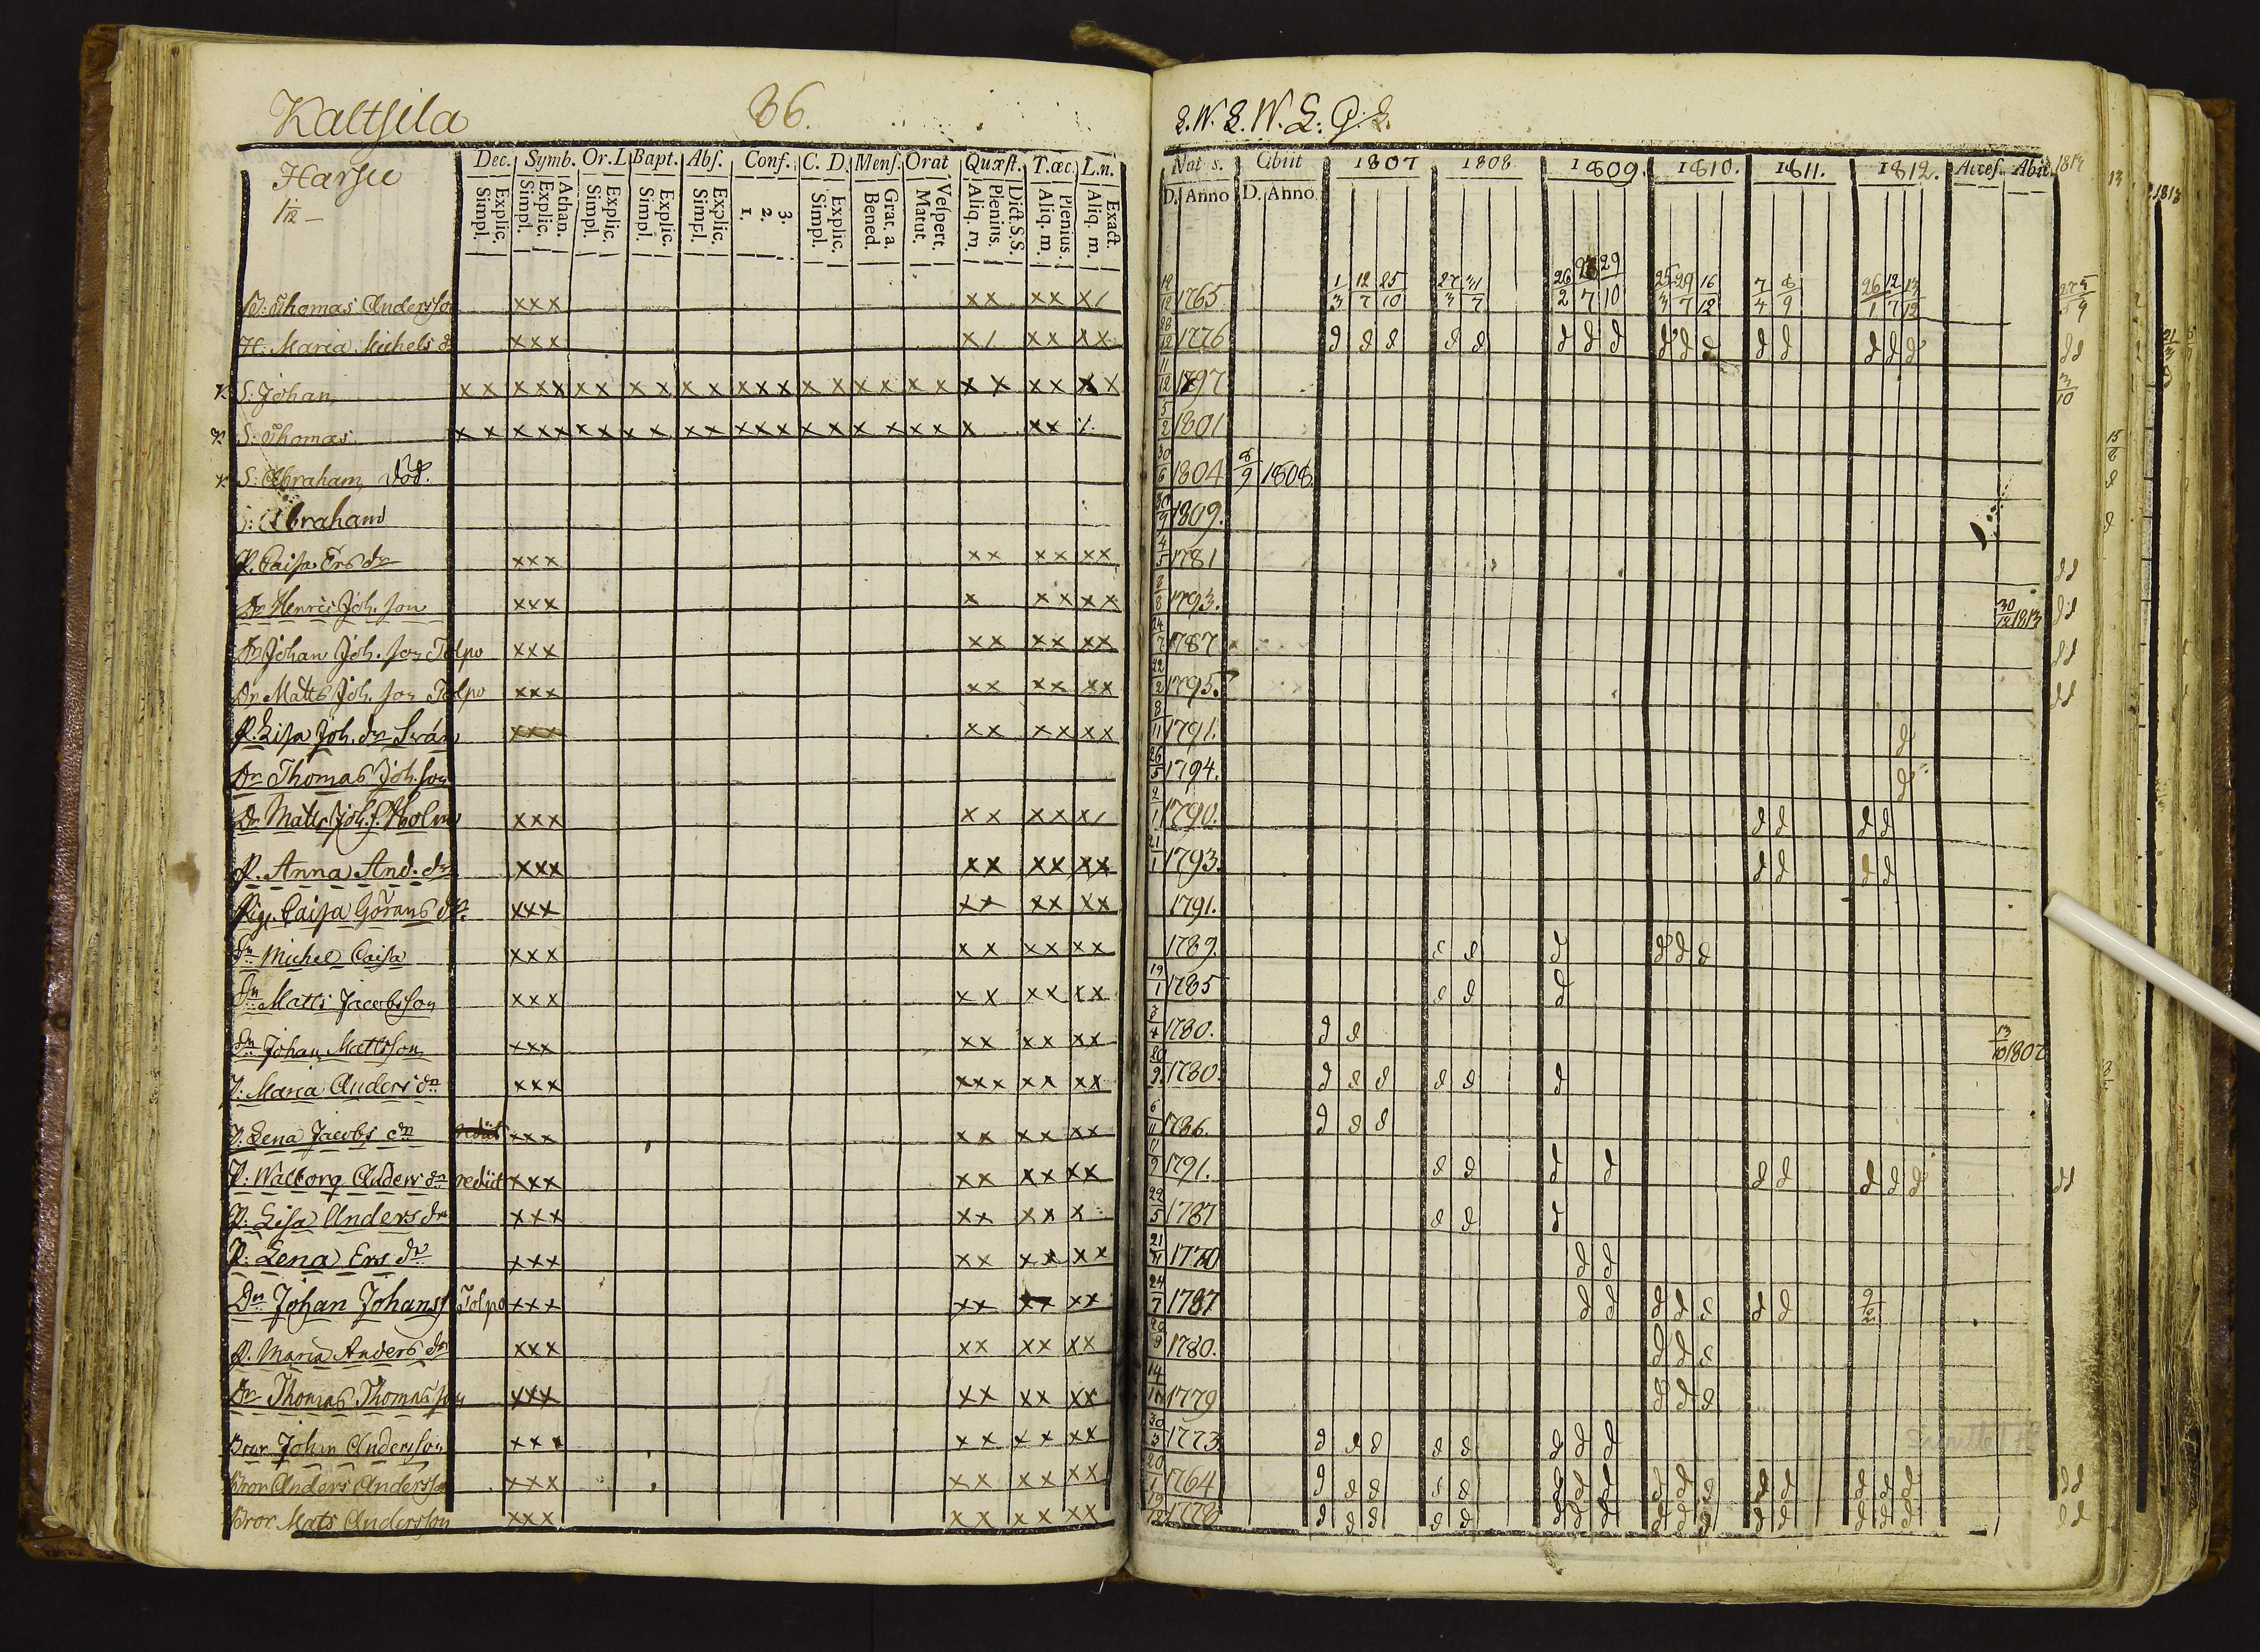 Kaltsila 36. L. W. L. W. L. Q. L.
Harju
1/12 –
Dec. Symb. Or. L. Bapt. Abs. Conf. C. D. Mens. Orat Quæst. T. œc. L. n.
Explic. Simpl. Athan. Explic. Simpl. Explic. Simpl. Explic. Simpl. Explic. Simpl. 3. 2. 1. Explic. Simpl. Grat. a. Bened. Vespert. Matut. Dict. S. S. Plenius. Aliq. m. Plenius. Aliq. m. Exact. Aliq. m.
Nat s. Obiit 1807 1808 1809. 1810. 1811. 1812. Acces. Abit. 1813
D. Anno D. Anno
B: Thomas Andersson xxx xx xx x/ 1765 1/3 12/7 25/10 27/3 31/7 26/2 29/10 25/3 29/7 16/12 7/4 8/9 26/1 12/7 13/12
H: Maria Michels dr xxx x/ xx xx 28/12 1776 d d d d d d d d d d d d d d d d d d
S: Johan xx xxx xx xx xx xxx xx xx xx xx xx xx 11/12 1797 3/10
S: Thomas xx xxx xx xx xx xxx xx xx xx x xx 5/2 1801
S: Abraham död. 30/6 1804 8/9 1808.
S: Abraham 30/9 1809.
P. Caisa Ers dr xxx xx xx xx 4/5 1781 d d
Dr Henric Joh. son xxx x xx xx 8/8 1793. 30/12 1813 d d
Dr Johan Joh. son Tolpo xxx xx xx xx 24/7 1787 d d
Dr Matts Joh. son Tolpo xxx xx xx xx 22/2 1795. d d
P. Lisa Joh. dr Svan xxx xx xx xx 8/11 1791. d
Dr Thomas Joh. son 26/5 1794. d
Dr Matts Joh. s. Holm xxx xx xx x/ 2/1 1790. d d d d
P. Anna And. dr xxx xx xx xx 21/1 1793. d d d d
Pig. Caisa Görans dr xxx xx xx xx 1791.
Dn Michel Caisa xxx xx xx xx 1789. d d d d d d
Dn Matts Jacobsson xxx xx xx xx 19/1 1785 d d d
Dn Johan Mattsson xxx xx xx xx 3/4 1780. d d 13/10 1807
P: Maria Anders dn xxx xxx xx xx 20/9 1780. d d d d d d
P: Lena Jacobs dn rediit xxx xx xx xx 6/11 1786. d d d
P: Walborg Anders dn rediit xxx xx xx xx 11/9 1791. d d d d d d d d d d d
P: Lisa Anders dr xxx xx xx x 22/5 1787 d d d
P: Lena Ers dr xxx xx xx xx 21/11 1770 d d
Dn Johan Johanss Tolpo xxx xx xx xx 24/7 1787 d d d d d d d 9/2
P. Maria Anders dr xxx xx xx xx 20/9 1780. d d d
Dr Thomas Thomasson xxx xx xx xx 1779 d d d
Bror Johan Andersson xxx xx xx xx 30/3 1773 d d d d d d d d
Bror Anders Andersson xxx xx xx xx 20/1 1764 d d d d d d d d d d d d d d d d d d
Bror Mats Andersson xxx xx xx xx 19/12 1778 d d d d d d d d d d d d d d d d d d